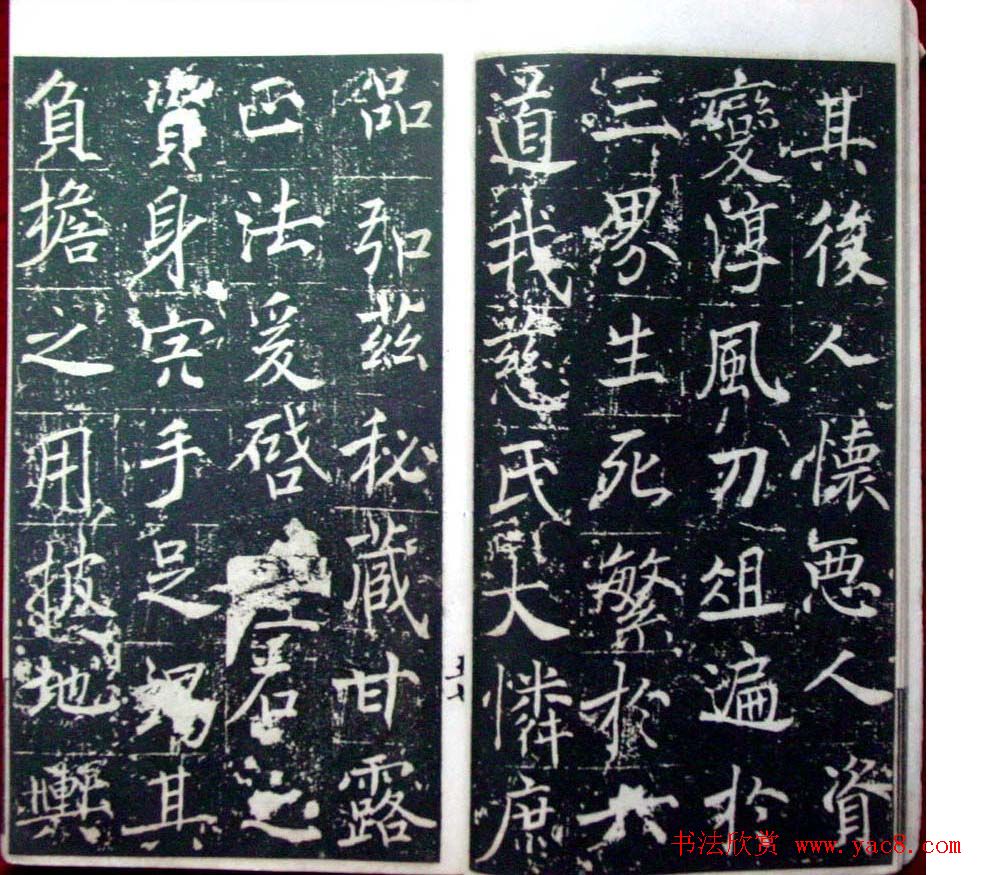 其後人懷惡人資
變淳風刀俎遍於
三界生死繁於六
道我慈氏大憐庶
品弘茲秘藏甘露
正法爰啓之
資身手足竭其
負擔之用披地
书法欣赏 www.yac8.com